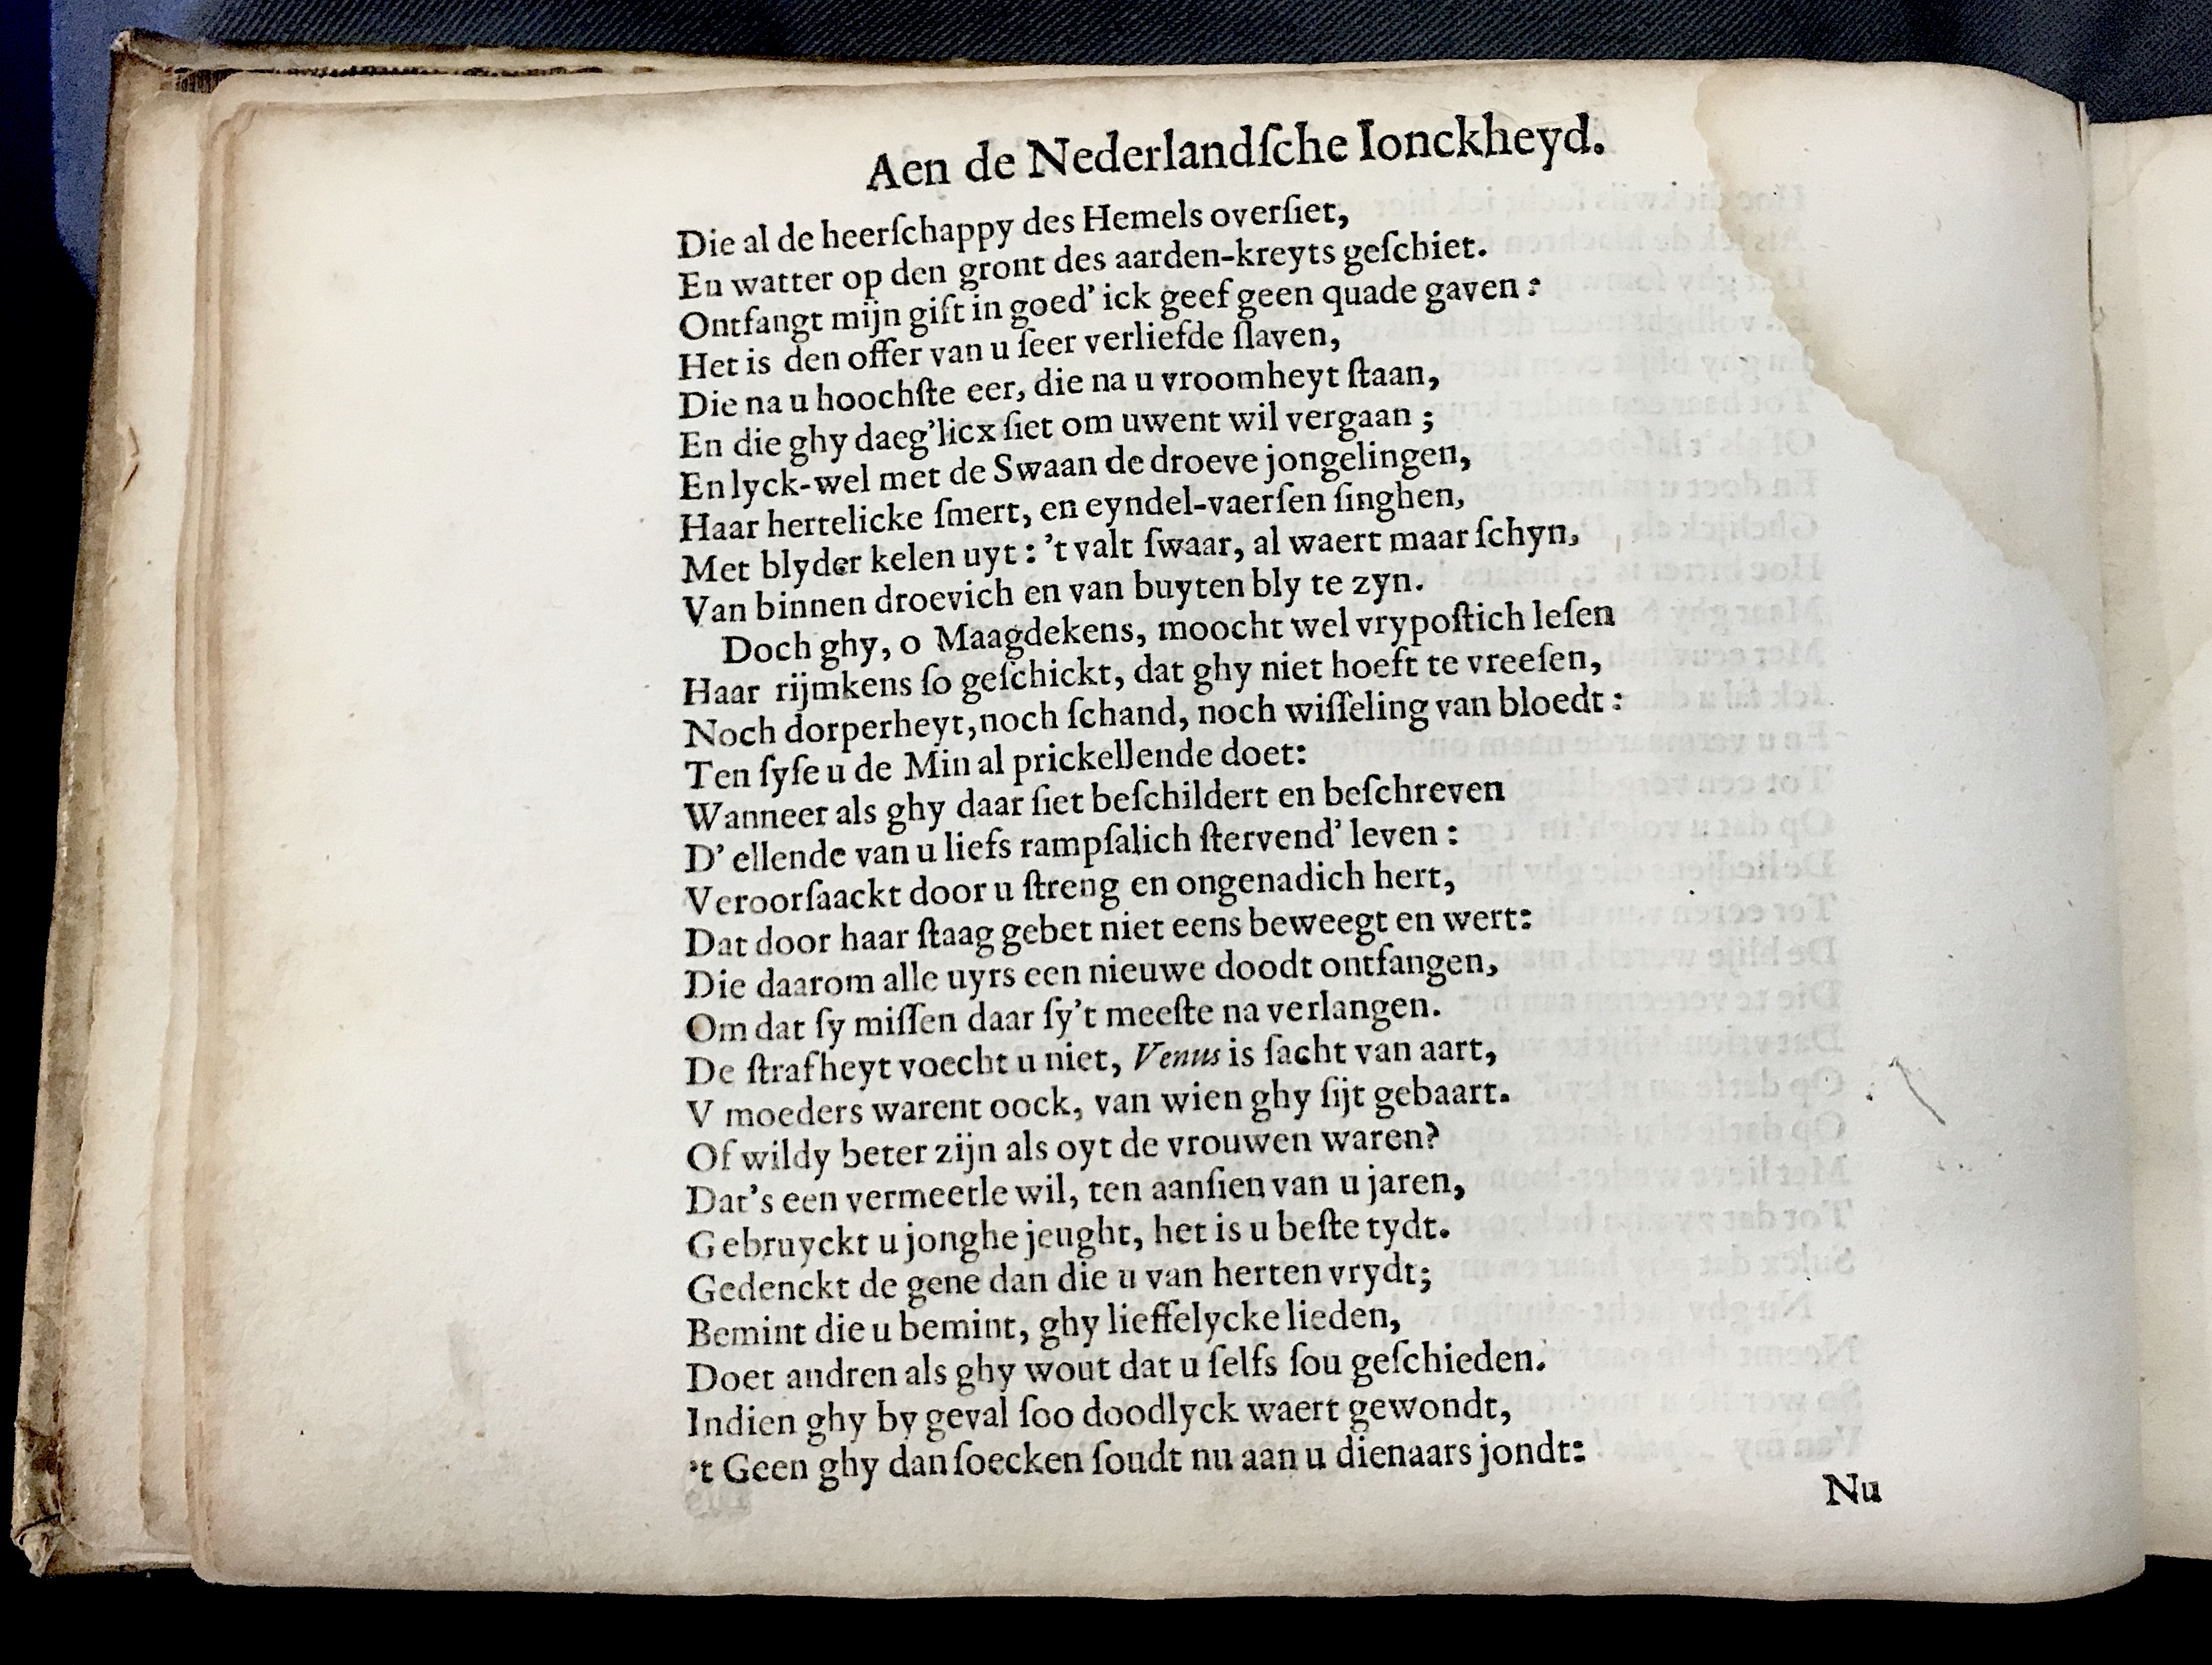 Aen de Nederlandſche Ionckheyd.
Die al de heerſchappy des Hemels overſiet,
Eu watter op den gront des aarden-kreyts geſchiet.
Ontfangt mijn gift in goed' ick geef geen quade gaven :
Het is den offer van u ſeer verliefde ſlaven,
Die na u hoochſte eer, die na u vroomheyt ſtaan,
En die ghy daeg'licx ſiet om uwent wil vergaan ;
En lyck-wel met de Swaan de droeve jongelingen,
Haar hertelicke ſmert, en eyndel-vaerſen ſinghen,
Met blyder kelen uyt : 't valt ſwaar, al waert maar ſchyn,
Van binnen droevich en van buyten bly te zyn.
Doch ghy, o Maagdekens, moocht wel vrypoſtich leſen
Haar rijmkens ſo geſchickt, dat ghy niet hoeft te vreeſen,
Noch dorperheyt, noch ſchand, noch wiſſeling van bloedt :
Ten ſyſe u de Min al prickellende doet:
Wanneer als ghy daar ſiet beſchildert en beſchreven
D' ellende van u liefs rampſalich ſtervend' leven :
Veroorſaackt door u ſtreng en ongenadich hert,
Dat door haar ſtaag gebet niet eens beweegt en wert:
Die daarom alle uyrs een nieuwe doodt ontfangen,
Om dat ſy miſſen daar ſy't meeſte na verlangen.
De ſtrafheyt voecht u niet, Venus is ſacht van aart,
V moeders warent oock, van wien ghy ſijt gebaart.
Of wildy beter zijn als oyt de vrouwen waren?
Dat's een vermeetle wil, ten aanſien van u jaren,
Gebruyckt u jonghe jeught, het is u beſte tydt.
Gedenckt de gene dan die u van herten vrydt;
Bemint die u bemint, ghy lieffelycke lieden,
Doet andren als ghy wout dat u ſelfs ſou geſchieden.
Indien ghy by geval ſoo doodlyck waert gewondt,
't Geen ghy dan ſoecken ſoudt nu aan u dienaars jondt:
Nu